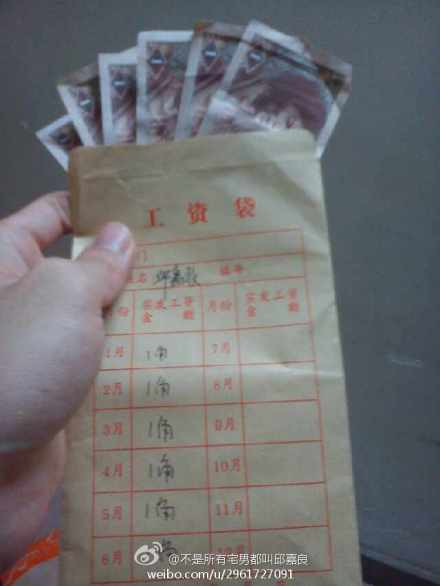 工资袋
门
姓名 编号
月份 实发工资金额 月份 实发工资金额
1月 1角 7月
2月 1角 8月
3月 1角 9月
4月 1角 10月
5月 1角 11月
6月
@不是所有宅男都叫邱嘉良
weibo.com/u/2961727091